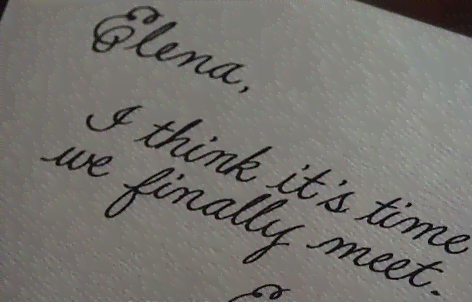 Elena,
I think it's time
we finally meet.